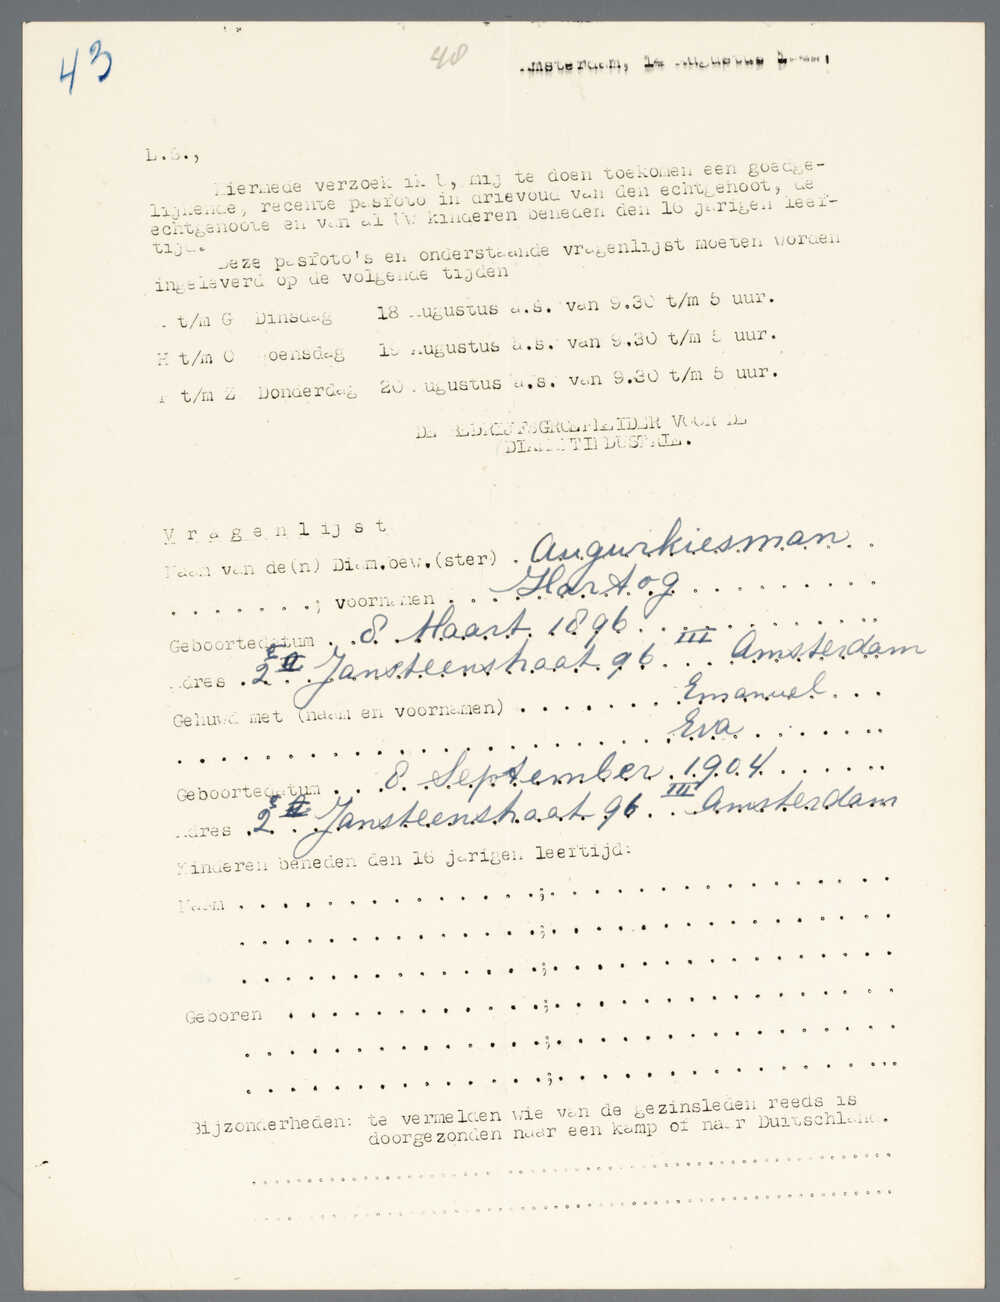 43
48
Amsterdam, 14 Augustus
L.S.,
Hiermede verzoek ik U, mij te doen toekomen een goedge-
lijkende, recente pasfoto in drievoud van den echtgenoot, de
echtgenoote en van al Uw kinderen beneden den 16 jarigen leef-
tijd.
Deze pasfoto's en onderstaande vragenlijst moeten worden
ingeleverd op de volgende tijden
A t/m G Dinsdag 18 Augustus a.s. van 9.30 t/m 5 uur.
H t/m O Woensdag 19 Augustus a.s. van 9.30 t/m 5 uur.
P t/m Z Donderdag 20 Augustus a.s. van 9.30 t/m 5 uur.
DE BEDRIJFSGROEPLEIDER VOOR DE
DIAMANTINDUSTRIE.
V r a g e n l ij s t
Naam van de(n) Diam.bew.(ster) . Augurkiesman . .
. . . . . . . ; voornamen . . . Hartog . . . . . . .
Geboortedatum . . 8 Maart 1896 . . . . . . . .
Adres . 2e Jansteenstraat 96 III . . . Amsterdam
Gehuwd met (naam en voornamen) . . . . . . . Emanuel . . .
. . . . . . . . . . . . . . . . . Eva . . . . . .
Geboortedatum . . . 8 September 1904 . . . . . .
Adres . 2e Jansteenstraat 96 III . . Amsterdam
Kinderen beneden den 16 jarigen leeftijd:
Naam . . . . . . . . . . . . . . ; . . . . . . . . . . . .
. . . . . . . . . . . . . . ; . . . . . . . . . . . .
. . . . . . . . . . . . . . ; . . . . . . . . . . . .
Geboren . . . . . . . . . . . . ; . . . . . . . . . . . .
. . . . . . . . . . . . . . ; . . . . . . . . . . . .
. . . . . . . . . . . . . . ; . . . . . . . . . . . .
Bijzonderheden: te vermelden wie van de gezinsleden reeds is
doorgezonden naar een kamp of naar Duitschland.